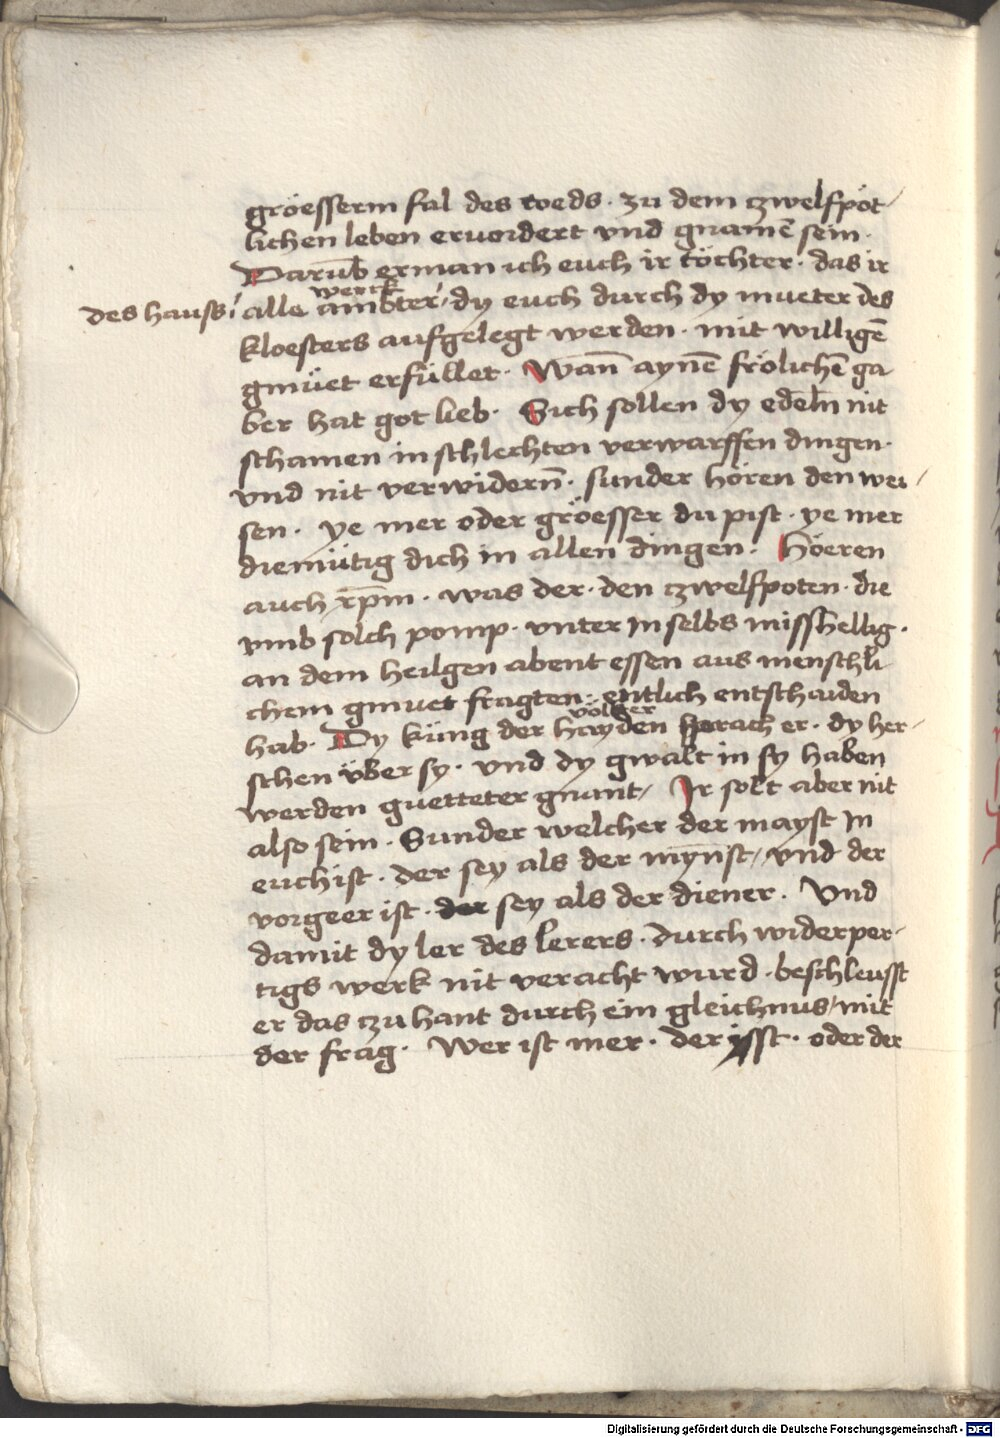 gröesserm fal des toeds · zu dem czwelfpöt-
lichen leben eruordert vnd gnamē sein ·
Darūb erman ich euch ir töchter · das ir
werck
des hauss alle ambter · dy euch durch dy mueter des
kloesters aufgelegt werden · mit willigē
gmüet erfüllet · Wañ aynē frölichē ga
ber hat got lieb · Sich sollen dy edelñ nit
schamen in schlechten verwarffen dingen ·
vnd nit verwidern̄ · sunder hören den wei-
sen · ye mer oder gröesser du pist · ye mer
diemütig dich in allen dingen · Höeren
auch xp̄m · was der · den czwelfpoten · die
vmb solch pomp · vnter in selbs misshellig ·
an dem heilgen abent essen aus menschli
chem gmuet fragten · entlich entschaiden
völcker
hab · Dy küng der hayden sprach er · dy her-
schen über sy · vnd dy gwalt in sy haben
werden guetteter gnant / Ir solt aber nit
also sein · Sunder welcher der mayst in
euch ist · der sey als der mynst / vnd der
vorgeer ist · der sey als der diener · Vnd
damit dy ler des lerers · durch widerper-
tigs werk nit veracht wurd · beschleusst
er das czu hant durch ein gleichnus / mit
der frag · Wer ist mer · der isst · oder der
Digitalisierung gefördert durch die Deutsche Forschungsgemeinschaft - DFG